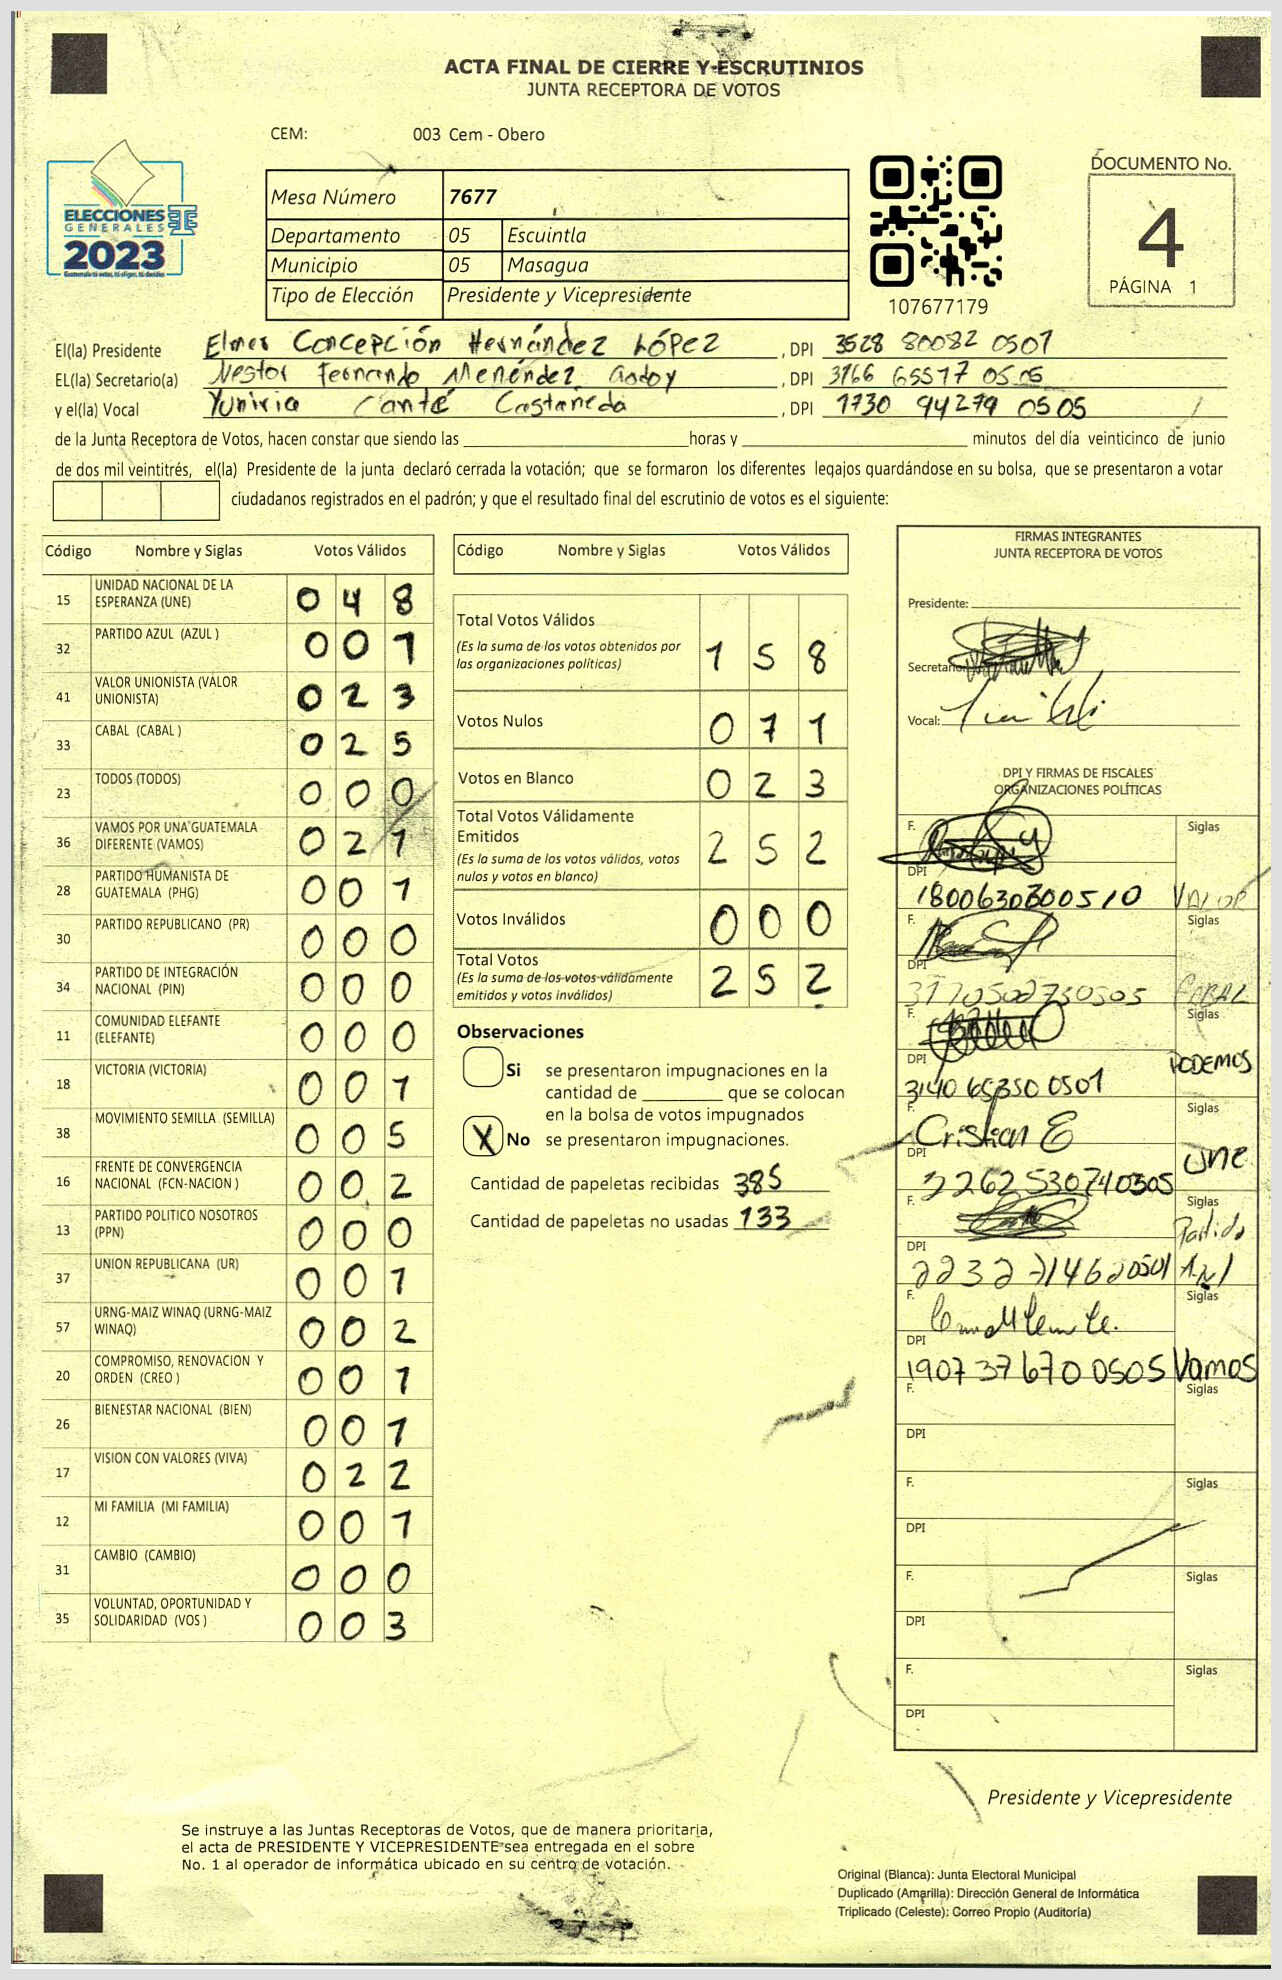 ACTA FINAL DE CIERRE Y ESCRUTINIOS
JUNTA RECEPTORA DE VOTOS
CEM: 003 Cem - Obero
ELECCIONES
GENERALES
2023
Mesa Número 7677
Departamento 05 Escuintla
Municipio 05 Masagua
Tipo de Elección Presidente y Vicepresidente
107677179
DOCUMENTO No.
4
PÁGINA 1
El(la) Presidente Elmer Concepción Hernández López, DPI 3528 80082 0501
EL(la) Secretario(a) Nestor Fernando Menéndez Godoy, DPI 3166 65517 0505
y el(la) Vocal Yuniria Canté Castañeda, DPI 1730 94279 0505
de la Junta Receptora de Votos, hacen constar que siendo las horas y minutos del día veinticinco de junio
de dos mil veintitrés, el(la) Presidente de la junta declaró cerrada la votación; que se formaron los diferentes legajos guardándose en su bolsa, que se presentaron a votar
ciudadanos registrados en el padrón; y que el resultado final del escrutinio de votos es el siguiente:
Código Nombre y Siglas Votos Válidos
15 UNIDAD NACIONAL DE LA ESPERANZA (UNE) 0 4 8
32 PARTIDO AZUL (AZUL ) 0 0 1
41 VALOR UNIONISTA (VALOR UNIONISTA) 0 2 3
33 CABAL (CABAL ) 0 2 5
23 TODOS (TODOS) 0 0 0
36 VAMOS POR UNA GUATEMALA DIFERENTE (VAMOS) 0 2 1
28 PARTIDO HUMANISTA DE GUATEMALA (PHG) 0 0 1
30 PARTIDO REPUBLICANO (PR) 0 0 0
34 PARTIDO DE INTEGRACIÓN NACIONAL (PIN) 0 0 0
11 COMUNIDAD ELEFANTE (ELEFANTE) 0 0 0
18 VICTORIA (VICTORIA) 0 0 1
38 MOVIMIENTO SEMILLA (SEMILLA) 0 0 5
16 FRENTE DE CONVERGENCIA NACIONAL (FCN-NACION ) 0 0 2
13 PARTIDO POLITICO NOSOTROS (PPN) 0 0 0
37 UNION REPUBLICANA (UR) 0 0 1
57 URNG-MAIZ WINAQ (URNG-MAIZ WINAQ) 0 0 2
20 COMPROMISO, RENOVACION Y ORDEN (CREO ) 0 0 1
26 BIENESTAR NACIONAL (BIEN) 0 0 1
17 VISION CON VALORES (VIVA) 0 2 2
12 MI FAMILIA (MI FAMILIA) 0 0 1
31 CAMBIO (CAMBIO) 0 0 0
35 VOLUNTAD, OPORTUNIDAD Y SOLIDARIDAD (VOS ) 0 0 3
Código Nombre y Siglas Votos Válidos
Total Votos Válidos 1 5 8
(Es la suma de los votos obtenidos por
las organizaciones políticas)
Votos Nulos 0 7 1
Votos en Blanco 0 2 3
Total Votos Válidamente
Emitidos 2 5 2
(Es la suma de los votos válidos, votos
nulos y votos en blanco)
Votos Inválidos 0 0 0
Total Votos 2 5 2
(Es la suma de los votos válidamente
emitidos y votos inválidos)
Observaciones
Si se presentaron impugnaciones en la
cantidad de que se colocan
en la bolsa de votos impugnados
X No se presentaron impugnaciones.
Cantidad de papeletas recibidas 385
Cantidad de papeletas no usadas 133
FIRMAS INTEGRANTES
JUNTA RECEPTORA DE VOTOS
Presidente:
Secretario:
Vocal:
DPI Y FIRMAS DE FISCALES
ORGANIZACIONES POLÍTICAS
F. Siglas
DPI 1800630300510 VALOR
F. Siglas
DPI 3170502730505 CABAL
F. Siglas
DPI 3140 65350 0501 PODEMOS
F. Cristian E Siglas
DPI 2262530740505 UNE
F. Siglas Partido
DPI 2232 71462 0501 Azul
F. Siglas
DPI 1907 37670 0505 Vamos
F. Siglas
DPI
F. Siglas
DPI
F. Siglas
DPI
F. Siglas
DPI
Presidente y Vicepresidente
Se instruye a las Juntas Receptoras de Votos, que de manera prioritaria,
el acta de PRESIDENTE Y VICEPRESIDENTE sea entregada en el sobre
No. 1 al operador de informática ubicado en su centro de votación.
Original (Blanca): Junta Electoral Municipal
Duplicado (Amarilla): Dirección General de Informática
Triplicado (Celeste): Correo Propio (Auditoría)